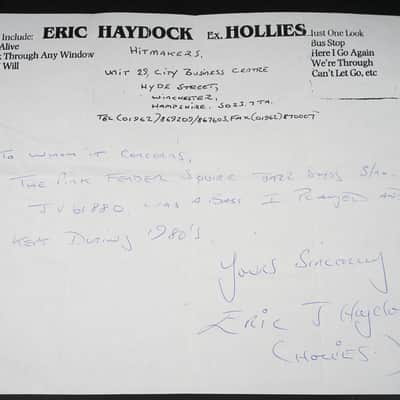 Include: ERIC HAYDOCK Ex. HOLLIES Just One Look
Alive Bus Stop
Through Any Window Here I Go Again
Will We're Through
Can't Let Go, etc
HITMAKERS,
UNIT 29, CITY BUSINESS CENTRE
HYDE STREET,
WINCHESTER,
HAMPSHIRE. SO23.7TA.
TEL (01962)/869209/867603, FAX (01962)870007
TO WHOM IT CONCERNS,
THE PINK FENDER SQUIRE JAZZ BASS S/No.
JV 61880, WAS A BASS I PLAYED AND
KEPT DURING 1980'S.
YOURS SINCERELY
ERIC J Haydo
(HOLLIES.)